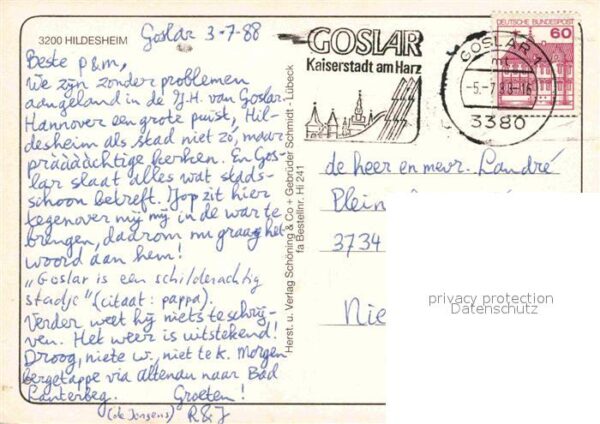 3200 HILDESHEIM
Goslar 3-7-88
Beste p&m,
We zijn zonder problemen
aangeland in de J.H. van Goslar.
Hannover een grote puist, Hil-
desheim als stad niet zó, maar
präääächtige kerken. En Gos-
lar slaat alles wat stads-
schoon betreft. Jop zit hier
tegenover mij mij in de war te
brengen, daarom nu graag het
woord aan hem!
"Goslar is een schilderachtig
stadje" (citaat: pappa).
Verder weet hij niets te schrij-
ven. Het weer is uitstekend!
Droog, niet te w., niet te k. Morgen
bergetappe via Altenau naar Bad
Lauterberg. Groeten!
(de Jongens) R&J
Herst. u. Verlag Schöning & Co + Gebrüder Schmidt - Lübeck
fa Bestellnr. Hi 241
GOSLAR
Kaiserstadt am Harz
DEUTSCHE BUNDESPOST
60
GOSLAR 1
mt
-5.-7.88-16
3380
de heer en mevr. Landré
Plein
3734
Nie
privacy protection
Datenschutz